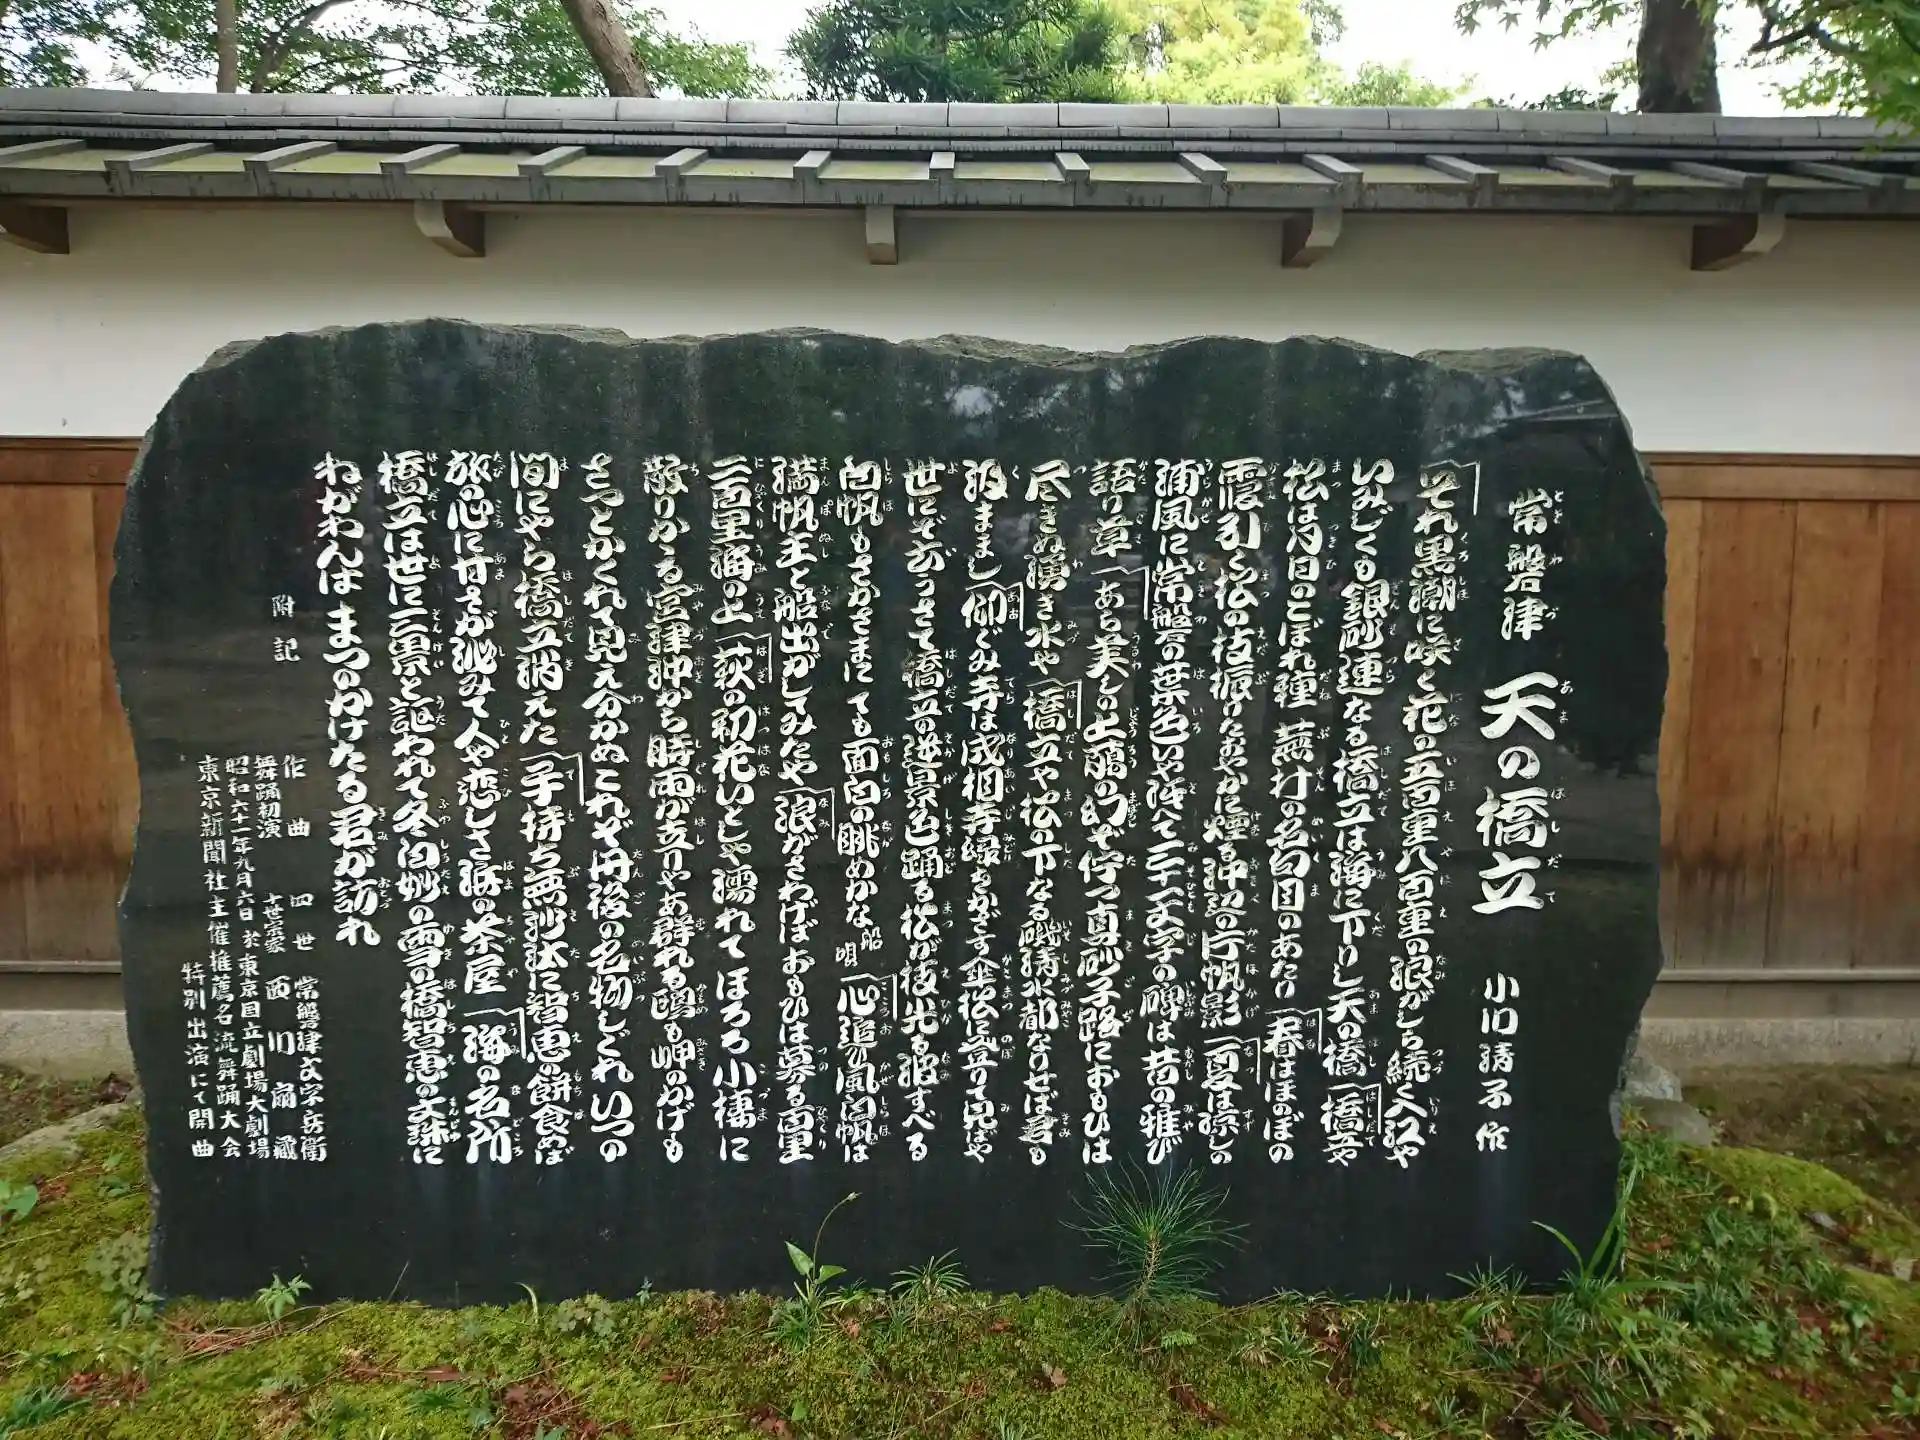 常磐津 天の橋立 小川清子作
それ黒潮に咲く花の五百重八百重の浪がしら続く入江や
いみじくも銀砂連なる橋立は海に下りし天の橋 橋立や
松は月日のこぼれ種 蕪村の名句目のあたり 春はほのぼの
霞引く松の枝振りたおやかに煙る沖辺の片帆影 夏は涼しの
浦風に常磐の葉色いや映へて三十一文字の碑は昔の雅び
語り草 あら美しの上﨟の幻ぞ佇つ真砂子路におもひは
尽きぬ湧き水や 橋立や松の下なる磯清水都なりせば君も
汲ままし 仰ぐみ寺は成相寺緑さかざす傘松に登りて見ばや
世にぞうさて橋立の逆景色踊る松が枝光る波すべる
白帆もさかさまにても面白の眺めかな 船唄 心追ひ風白帆は
満帆主と船出がしてみたや 浪がさわげばおもひは募る百里
二百里海の上 萩の初花いとしや濡れてほろろ小褄に
散りかゝる宮津沖から時雨が立りやあ群れる鴎も岬のかげも
さっとかくれて見え分かぬこれぞ丹後の名物しぐれいつの
間にやら橋立消えた 手持ち無沙汰に智恵の餅食めば
旅の心に甘さが沁みて人や恋しさ浜の茶屋 海の名所
橋立は世に三景と謳われて冬白妙の雪の橋智恵の文殊に
ねがわんはまつのかけたる君が訪れ
附記
作曲 四世 常磐津文字兵衛
舞踊初演 十世宗家 西川扇藏
昭和六十一年九月六日於東京国立劇場大劇場
東京新聞社主催推薦名流舞踊大会
特別出演にて開曲